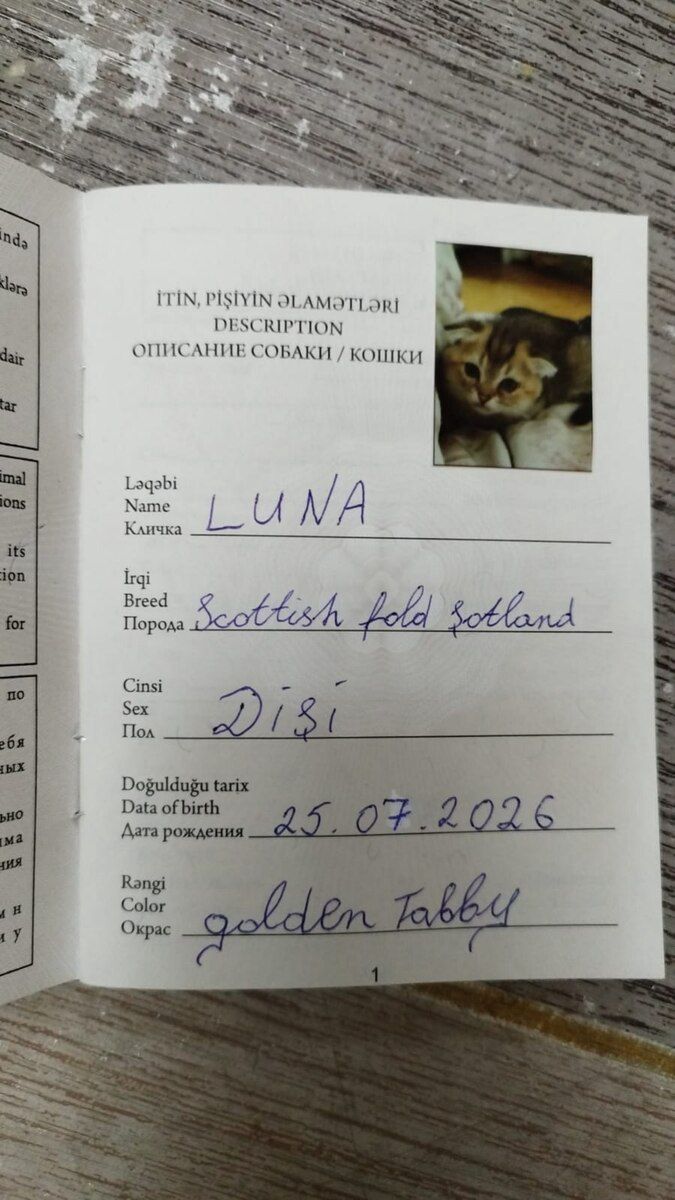 ində
klərə
dair
tar
imal
ions
its
tion
for
по
ебя
ных
ьно
има
ния
и н
и у
İTİN, PİŞİYİN ƏLAMƏTLƏRİ
DESCRIPTION
ОПИСАНИЕ СОБАКИ / КОШКИ
Ləqəbi
Name
Кличка LUNA
İrqi
Breed
Порода Scottish fold Şotland
Cinsi
Sex
Пол Dişi
Doğulduğu tarix
Data of birth
Дата рождения 25.07.2026
Rəngi
Color
Окрас golden Tabby
1